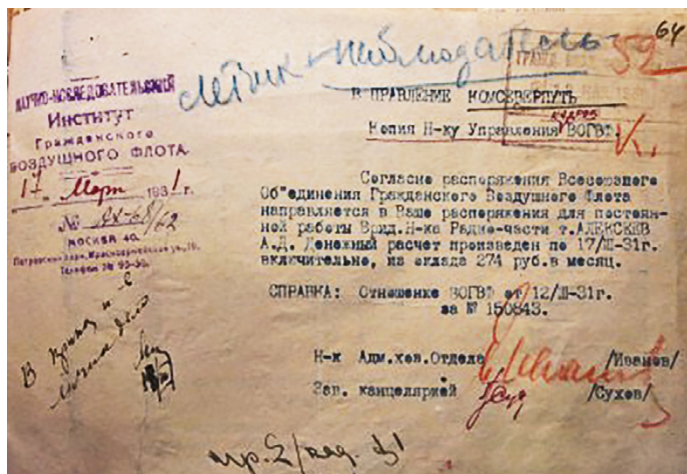 64
59
летчик-наблюдатель
НАУЧНО-ИССЛЕДОВАТЕЛЬСКИЙ
Институт
Гражданского
ВОЗДУШНОГО ФЛОТА.
17 Март 1931 г.
№
МОСКВА 40.
Петровский парк, Красноармейская ул., 19.
Телефон №
В ПРАВЛЕНИЕ КОМСЕВЕРПУТЬ
Копия Н-ку Управления ВОГВФ.
Согласно распоряжения Всесоюзного
Об"единения Гражданского Воздушного Флота
направляется в Ваше распоряжения для постоян-
ной работы Врид.Н-ка Радио-части т.АЛЕКСЕЕВ
А.Д. Денежный расчет произведен по 17/III-31г.
включительно, из оклада 274 руб.в месяц.
СПРАВКА: Отношение ВОГВФ от 12/III-31г.
за № 150843.
Н-к Адм.хоз.Отдела /Иванов/
Зав. канцелярией /Сухов/
В приказ и в
личное дело